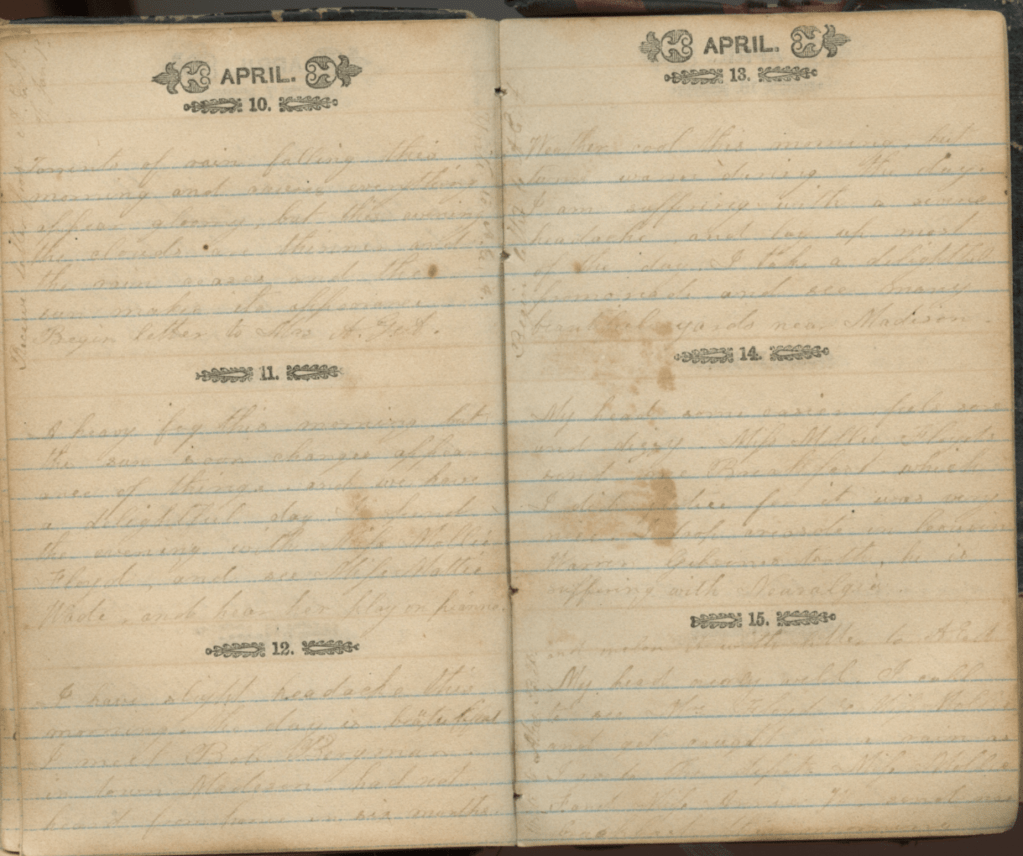 APRIL.
10.
Torrents of rain falling this
morning and everything
appear gloomy, but this evening
the clouds are thinner and
the rain ceases and the
sun makes its appearance
Begin letter to Mrs A.
11.
A heavy fog this morning but
the sun soon changes appear-
ance of things and we have
a delightful day
the evening with Miss Mollie
Floyd, and see Miss Mattie
Wade and hear her play on pianno.
12.
I have slight headache this
morning. the day is beautiful
I meet Bob Berryman
in town Madison had not
heard from home in six months
APRIL.
13.
Weather cool this morning, but
warm during the day.
I am suffering with a severe
headache, and lay up most
of the day. I take a delightful
promenade and see many
beautiful yards near Madison.
14.
My head some easier, feels sore
and dizzy. Miss Mollie Floyd
send me Breakfast which
I for it was very
nice.
he is
suffering with Neuralgia.
15.
with letter to
My head nearly well. I call
to see Mrs Floyd & Miss Mollie
and get caught in a rain as
I go to the Miss Mollie
and Miss